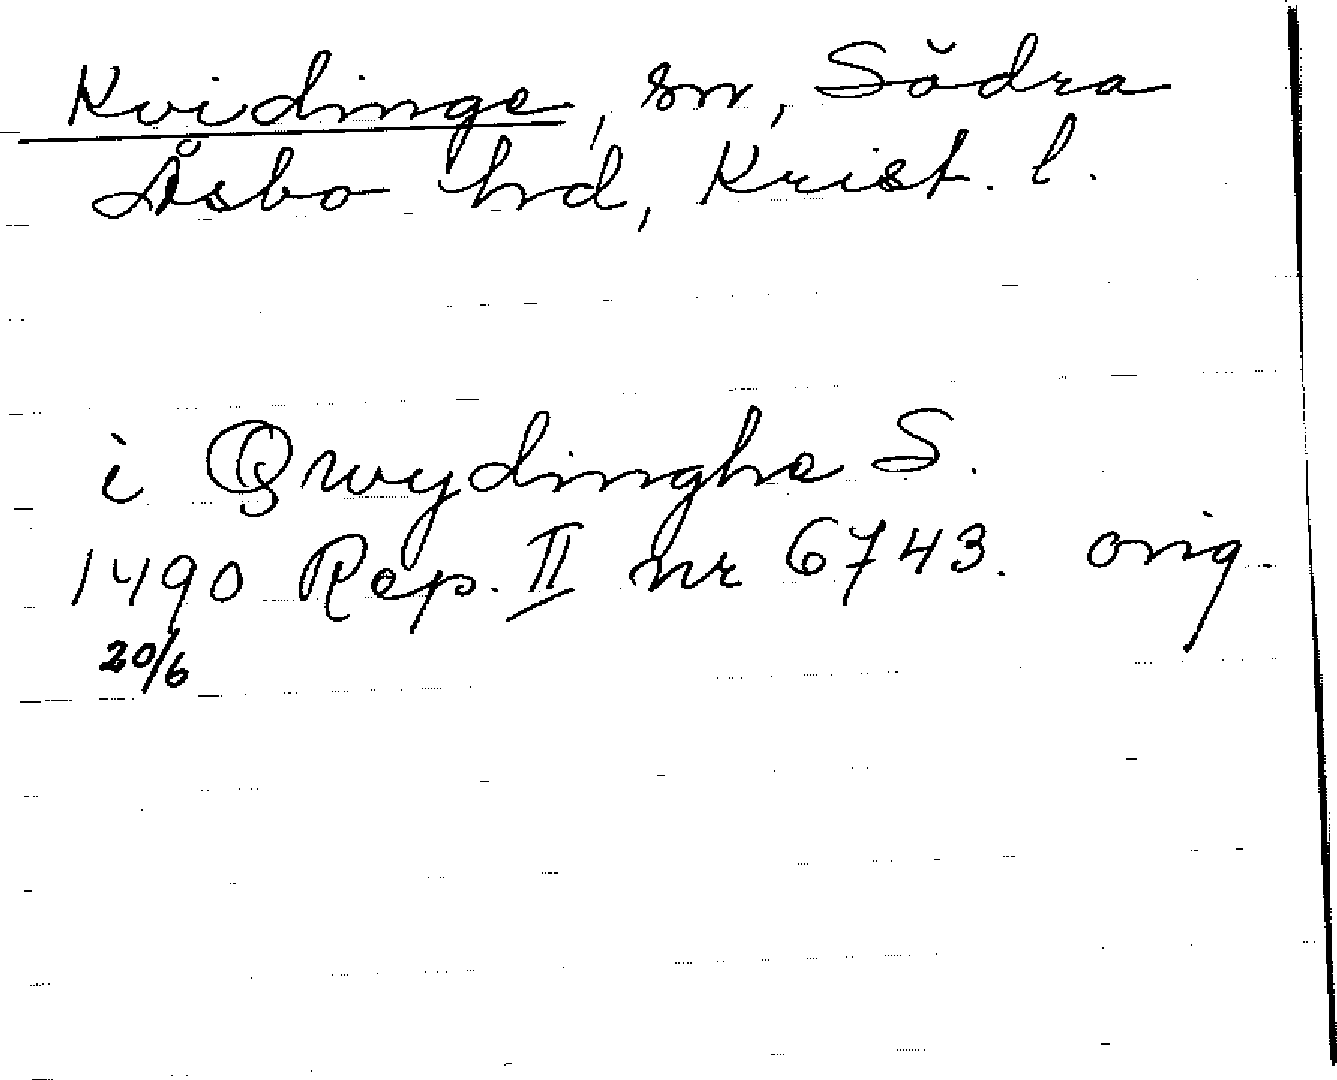 Kvidinge, sn, Södra
Åsbo hd, Krist. l.
i Qwydinghe S.
1490 Rep. II nr 6743. orig
20/6